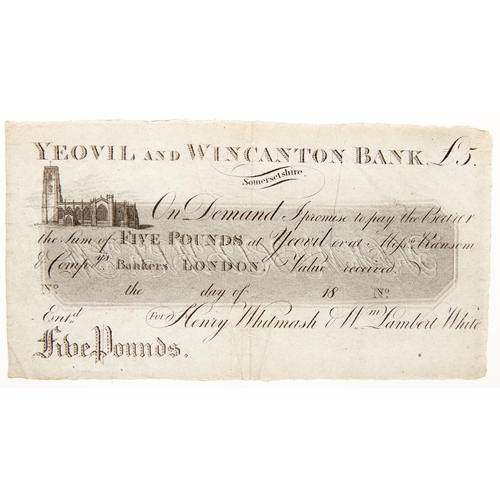 YEOVIL AND WINCANTON BANK £5.
Somersetshire.
On Demand I promise to pay the Bearer
the Sum of FIVE POUNDS at Yeovil or at Messrs Ransom
& Compys Bankers LONDON. Value received.
No the day of 18 No
Entd For Henry Whitmash & Wm Lambert White
Five Pounds.